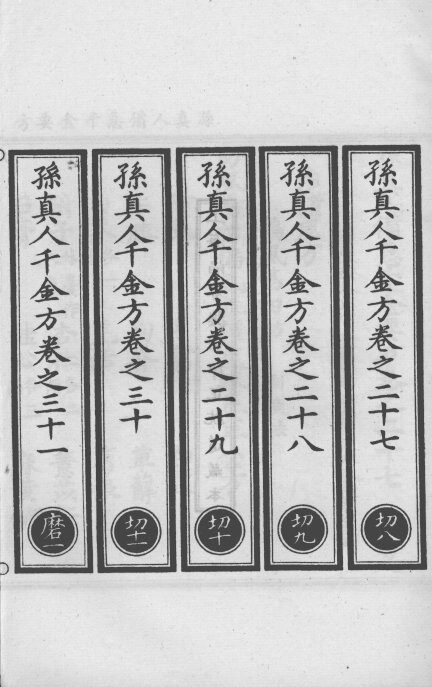 孫真人千金方卷之二十七
切八
孫真人千金方卷之二十八
切九
孫真人千金方卷之二十九
切十
孫真人千金方卷之三十
切十一
孫真人千金方卷之三十一
磨一